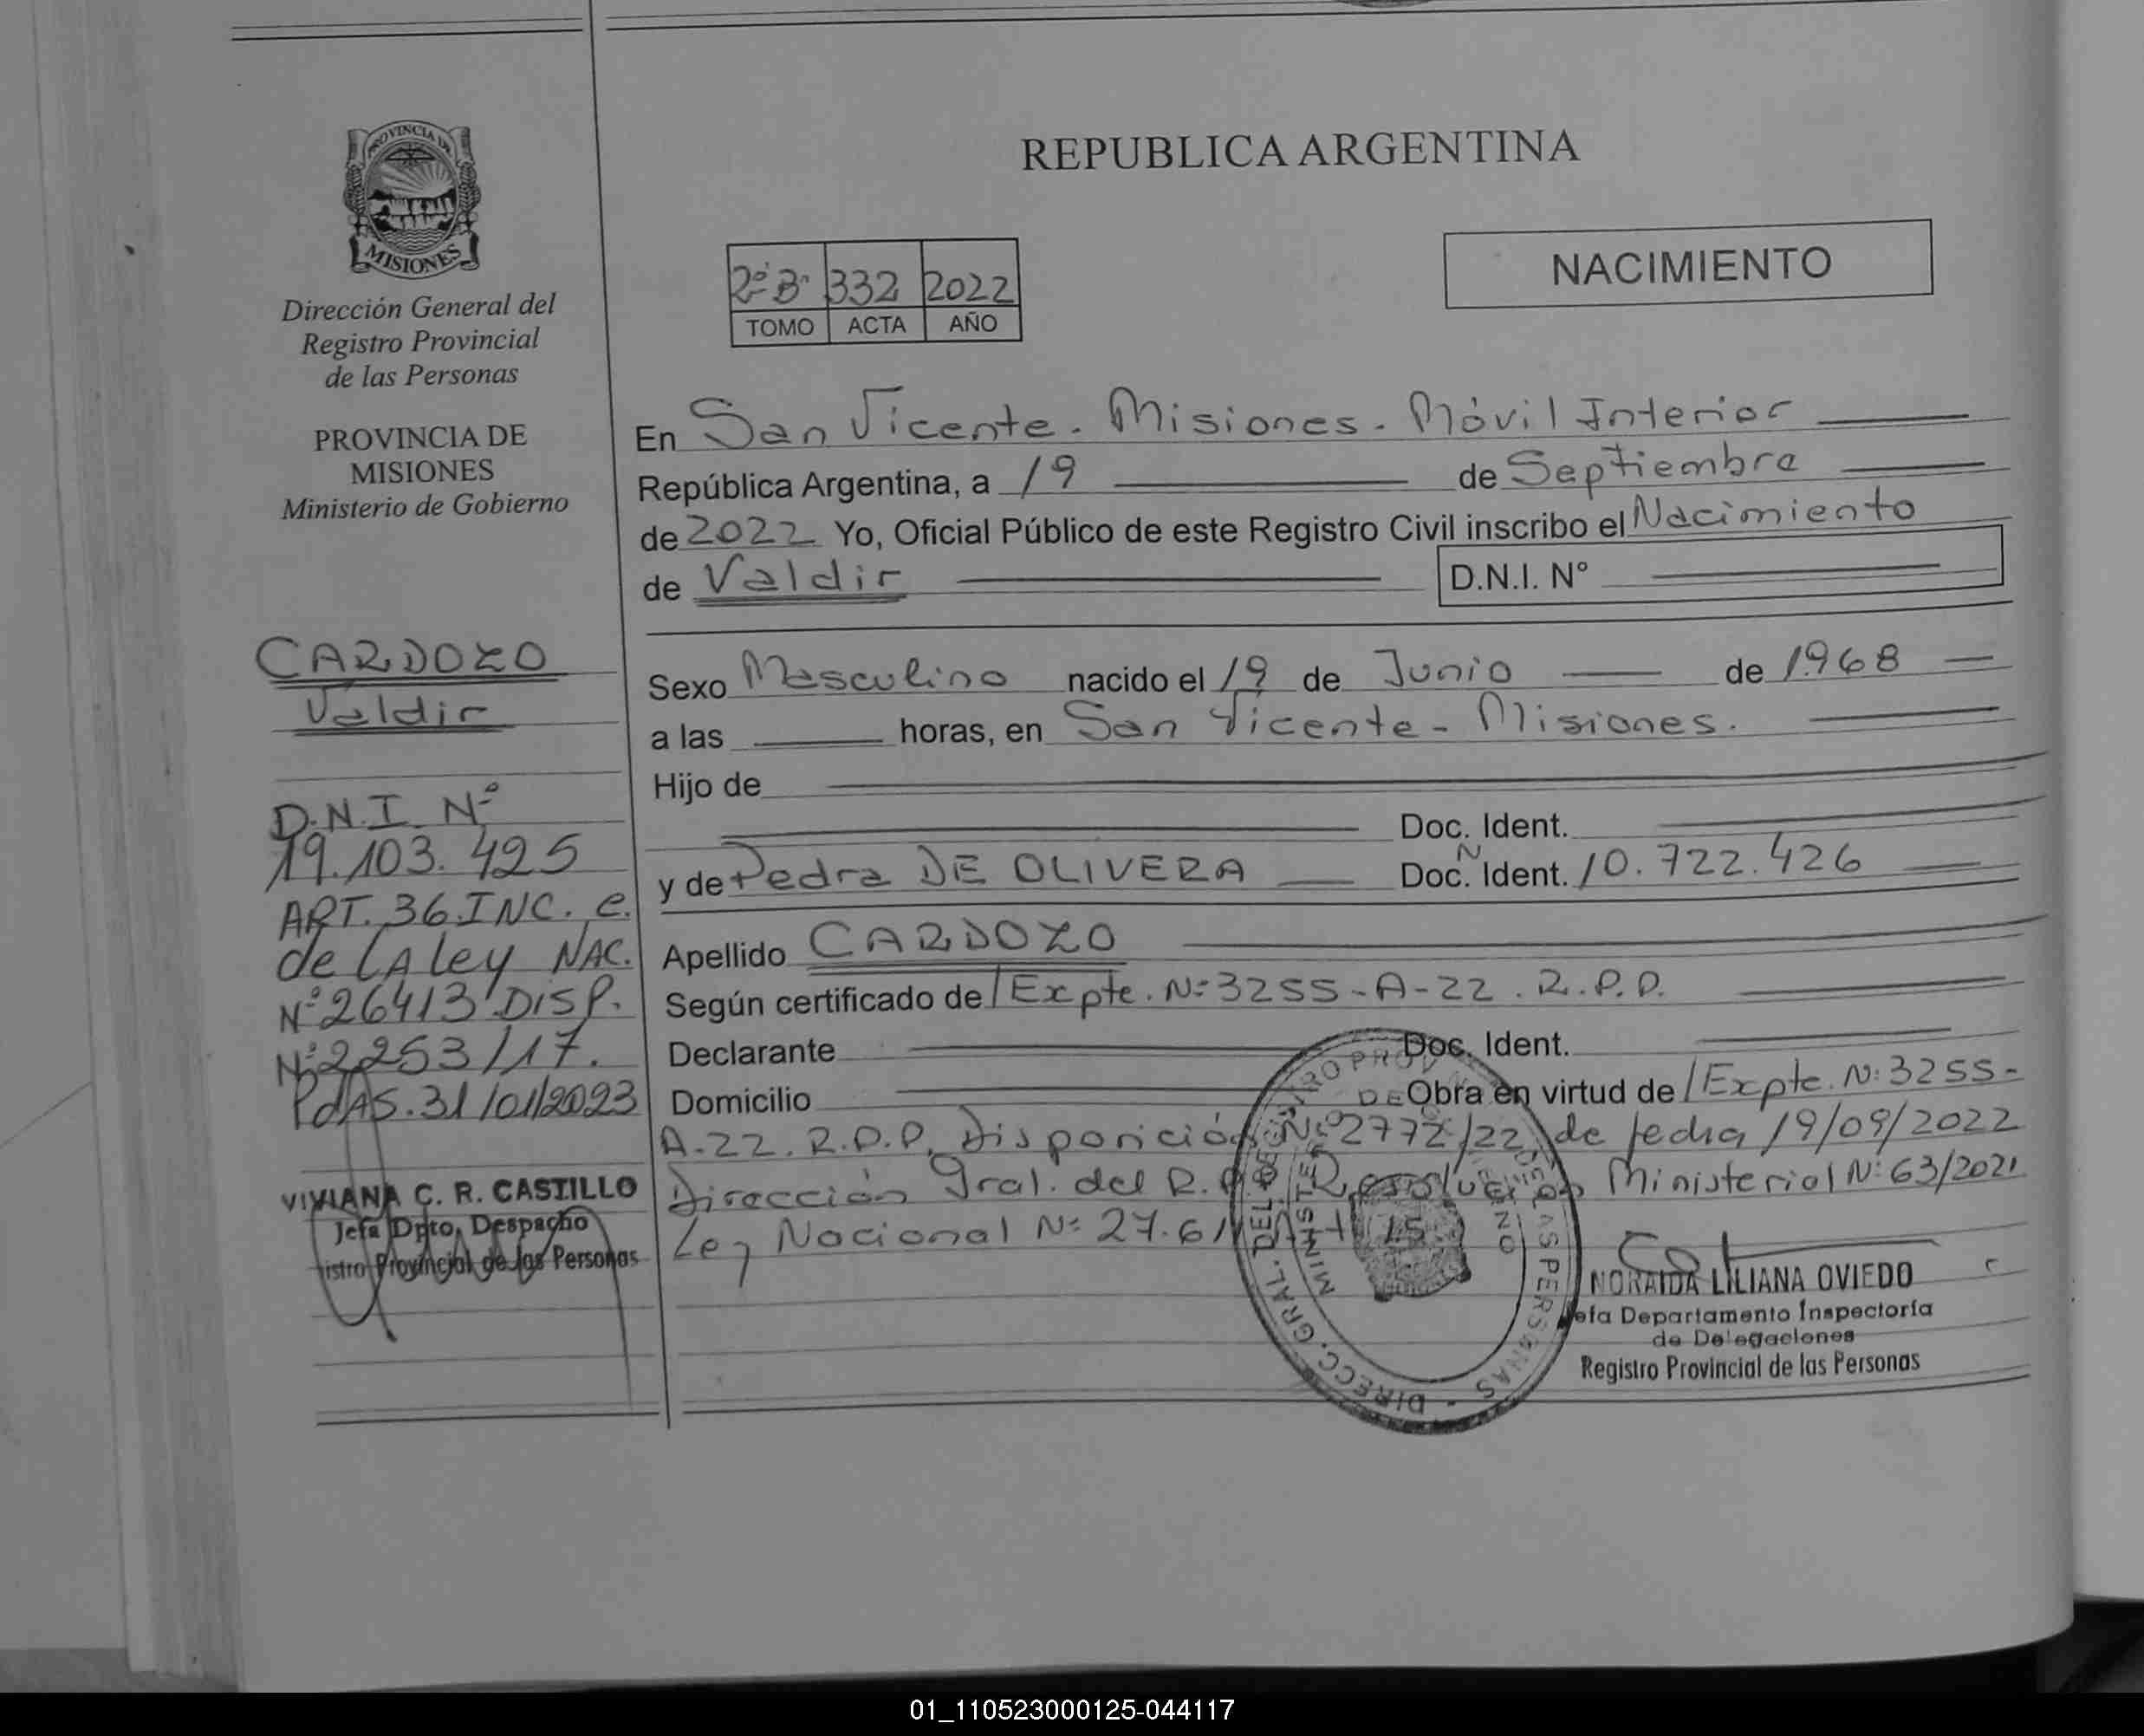 PROVINCIA DE
MISIONES
Dirección General del
Registro Provincial
de las Personas
PROVINCIA DE
MISIONES
Ministerio de Gobierno
CARDOZO
Valdir
D.N.I. Nº
19.103.425
ART. 36.INC. e.
de LA ley NAC.
Nº26413 DISP.
Nº2253/17.
PdAS.31/01/2023
VIVIANA C. R. CASTILLO
Jefa Dpto, Despacho
istro Provincial de las Personas
REPUBLICA ARGENTINA
NACIMIENTO
2º B. 332 2022
TOMO ACTA AÑO
En San Vicente. Misiones. Móvil Interior
República Argentina, a 19 de Septiembre
de 2022 Yo, Oficial Público de este Registro Civil inscribo el Nacimiento
de Valdir D.N.I. N°
Sexo Masculino nacido el 19 de Junio de 1.968
a las horas, en San Vicente - Misiones.
Hijo de
Doc. Ident.
y de Pedra DE OLIVERA Doc. Ident. N 10.722.426
Apellido CARDOZO
Según certificado de / Expte. Nº 3255-A-22. R.P.P.
Declarante Doc. Ident.
Domicilio Obra en virtud de / Expte. Nº 3255-
A-22. R.P.P. Disposición Nº 2772/22 de fecha 19/09/2022
Dirección Gral. del R.P.P. Resolución Ministerial Nº 63/2021
Ley Nacional Nº 27.61
DIRECC. GRAL. DEL REGISTRO PROV. DE LAS PERSONAS -
NORAIDA LILIANA OVIEDO
Jefa Departamento Inspectoría
de Delegaciones
Registro Provincial de las Personas
01_110523000125-044117